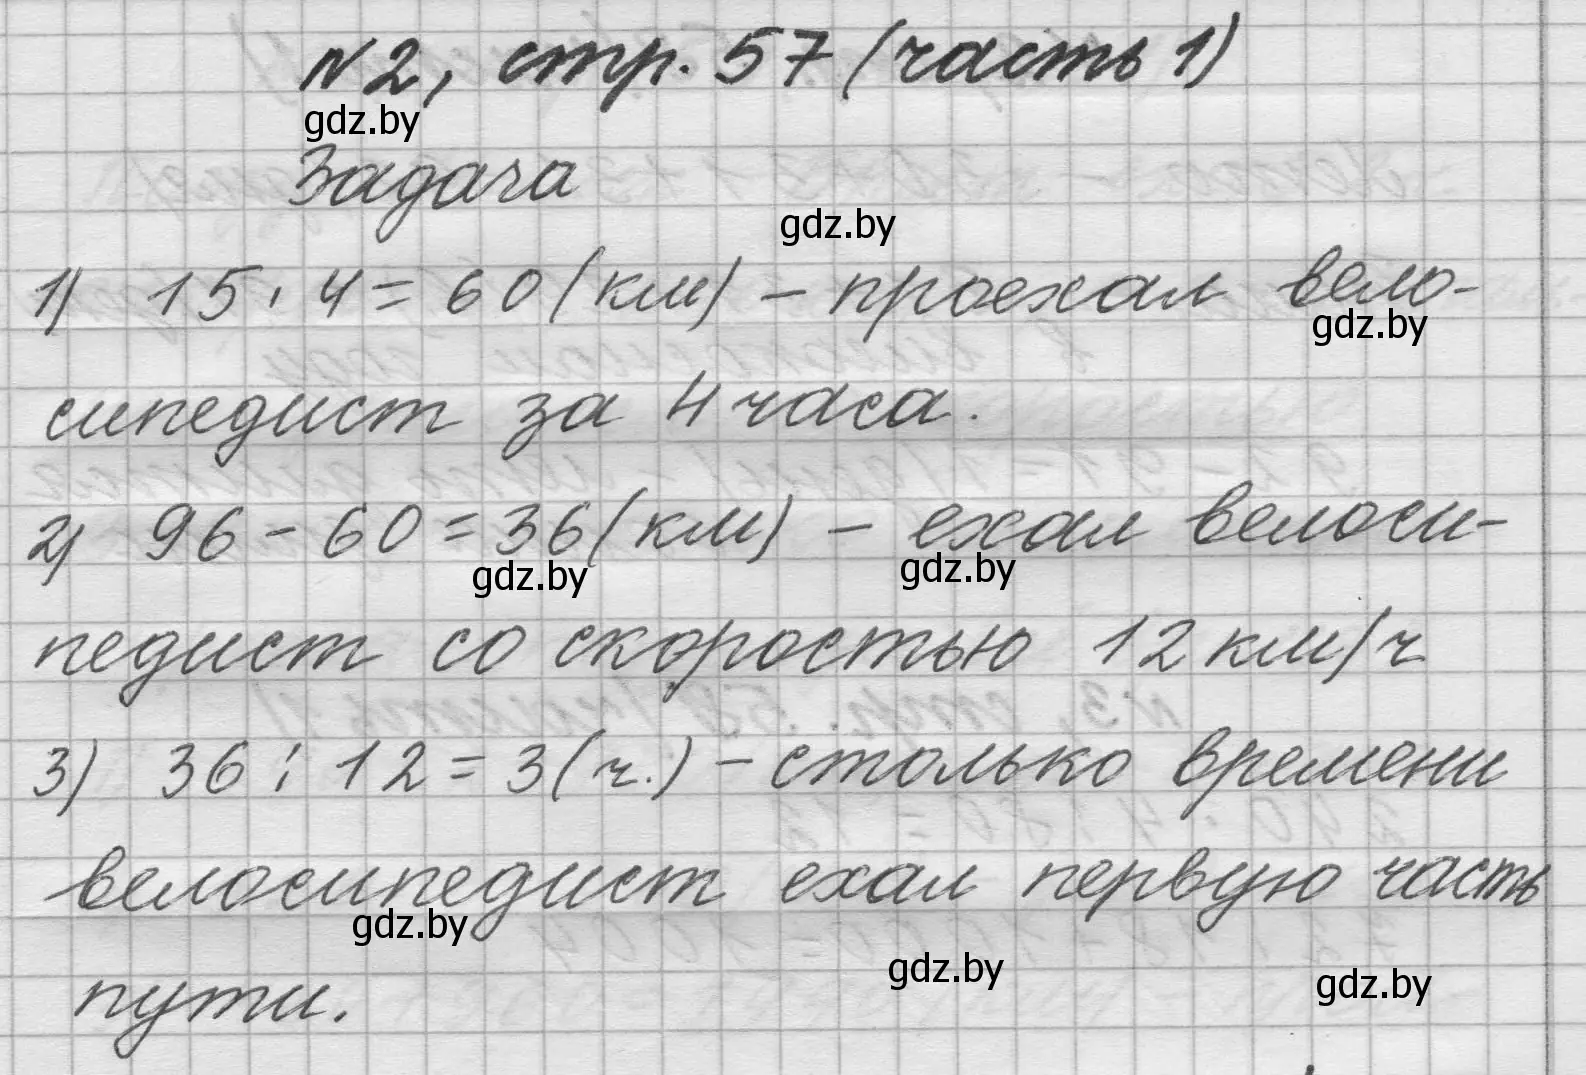 №2, стр. 57 (часть 1)
gdz.by
Задача
gdz.by
1) 15 · 4 = 60 (км) – проехал вело-
gdz.by
сипедист за 4 часа.
2) 96 – 60 = 36 (км) – ехал велоси-
gdz.by
gdz.by
педист со скоростью 12 км/ч
3) 36 : 12 = 3 (ч.) – столько времени
велосипедист ехал первую часть
gdz.by
gdz.by
gdz.by
пути.